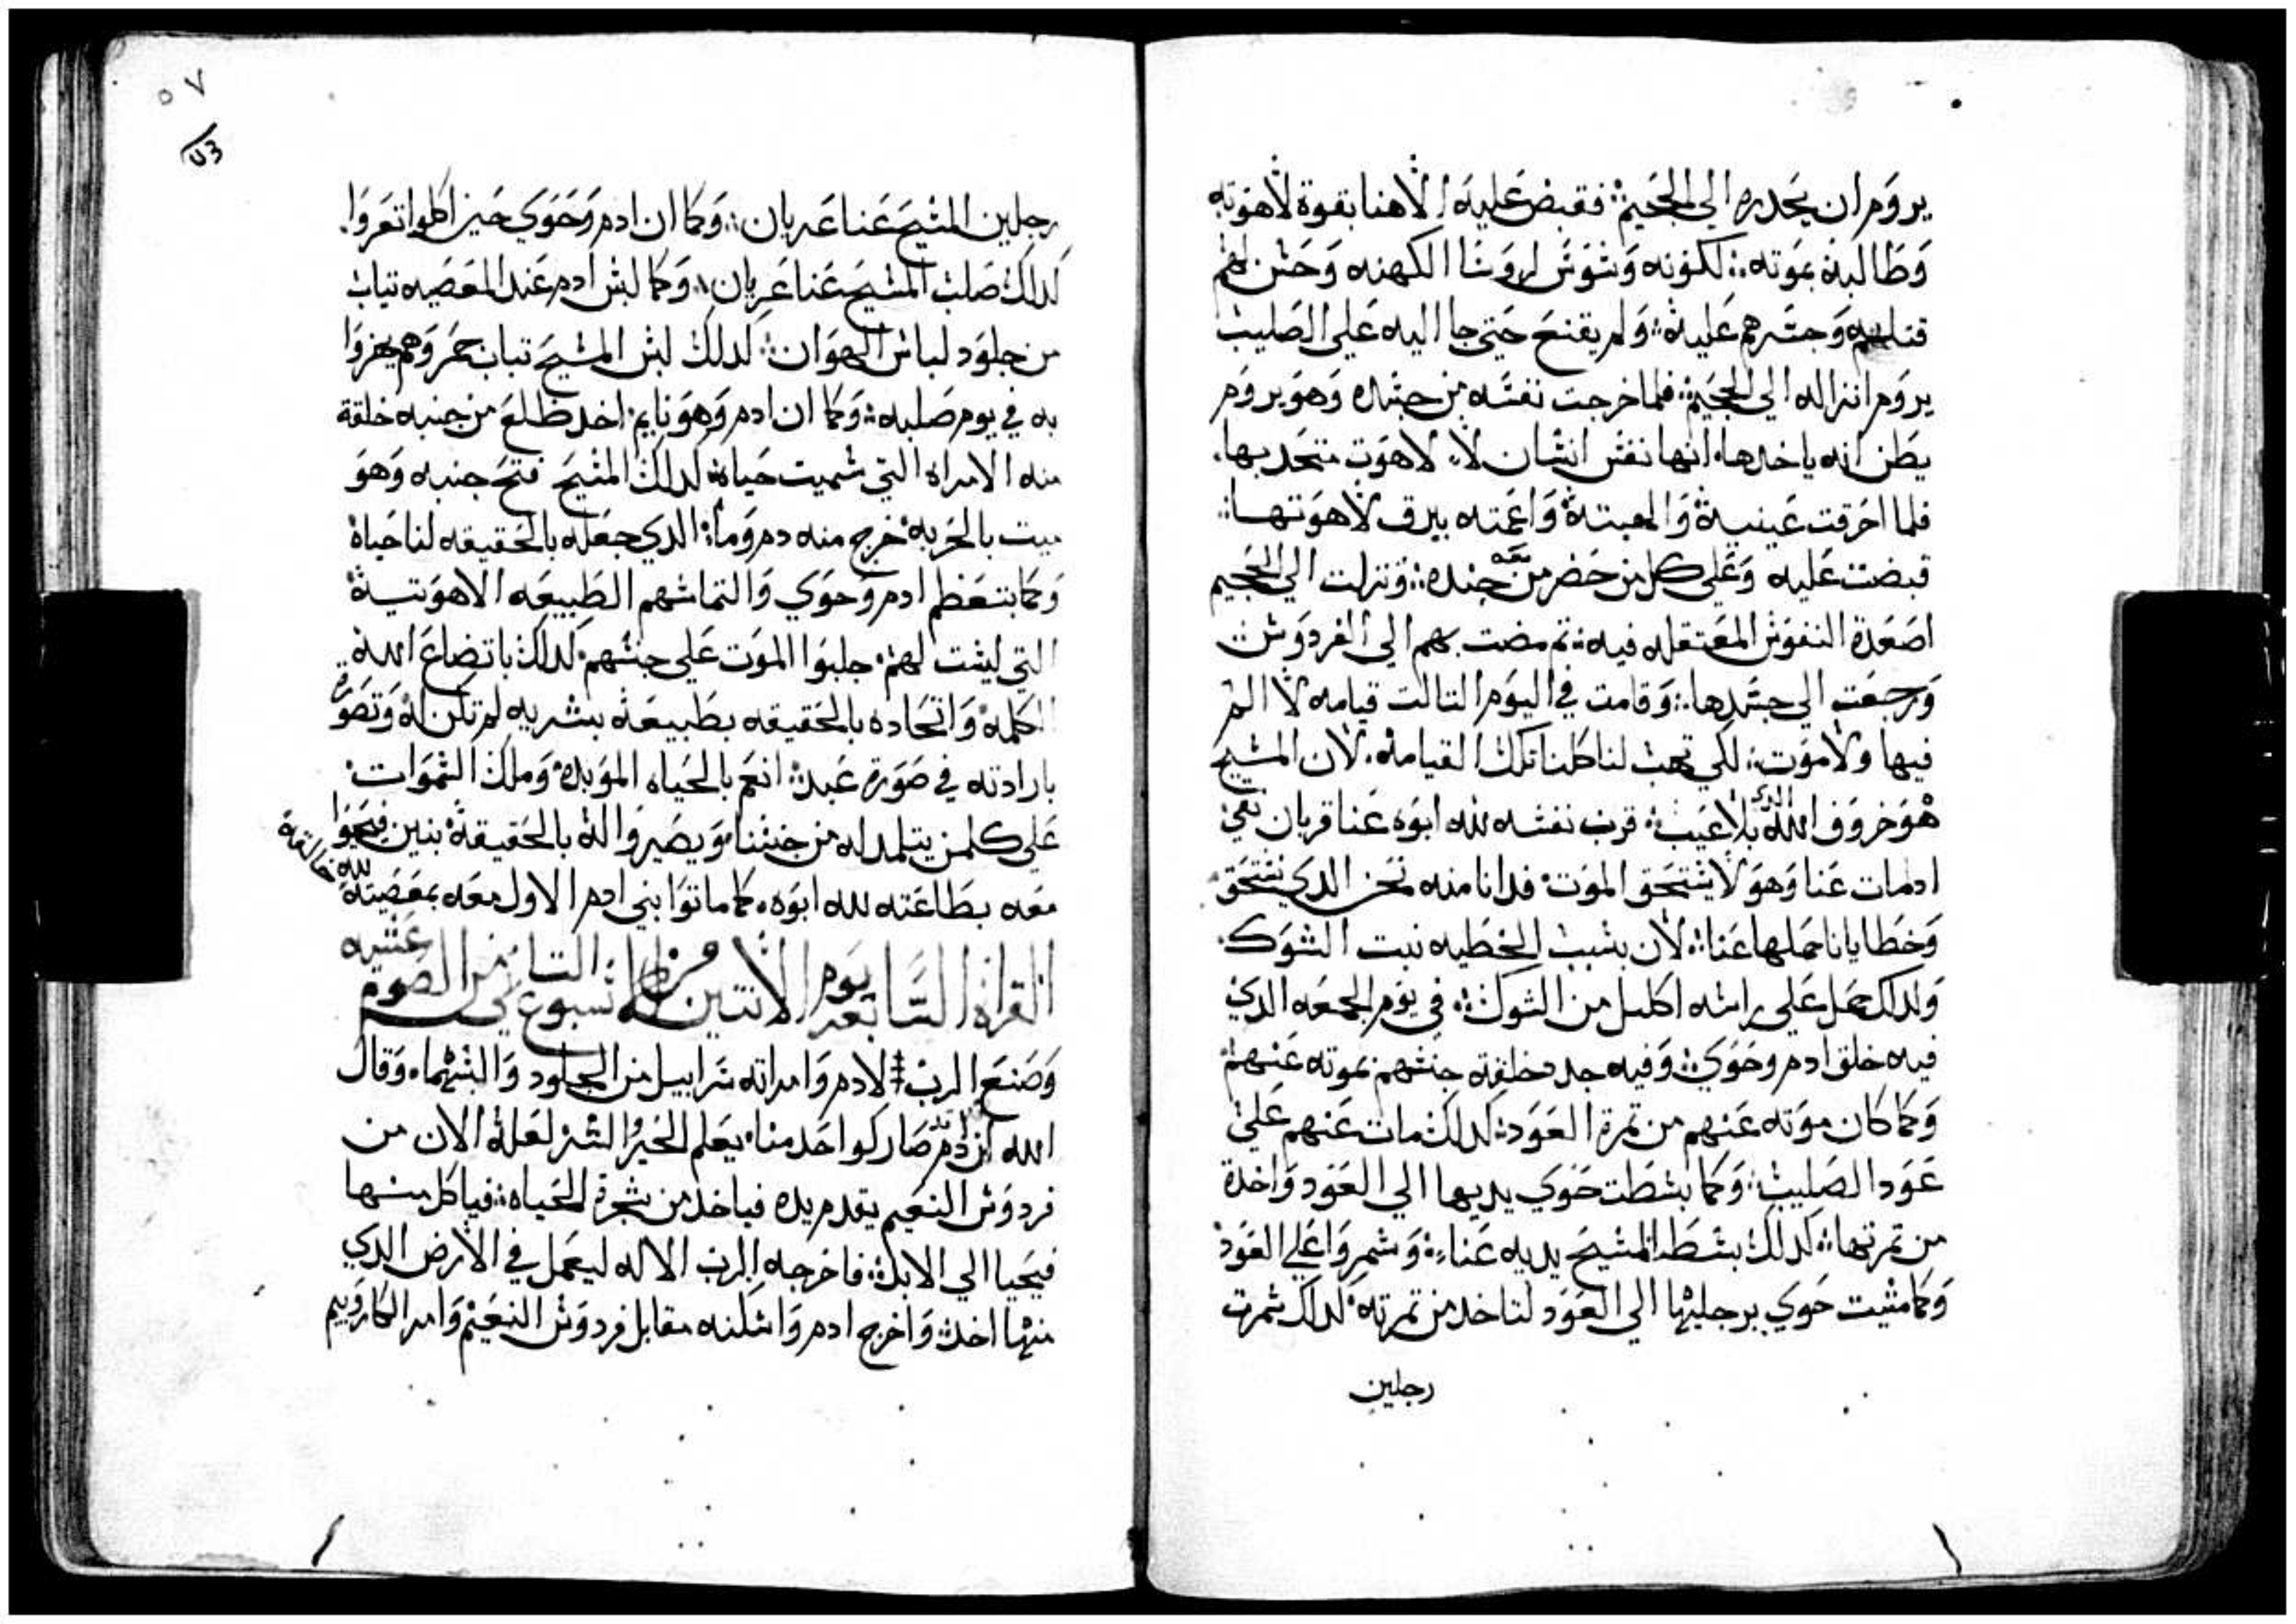 يروم ان يحدره الي الجحيم فقبض عليه الاهنا بقوة لاهوته
وطالبه بموته لكونه وشوش لروسا الكهنه وحسن لهم
قتله وجسرهم عليه ولم يقنع حتي جا اليه علي الصليب
يروم انزاله الي الجحيم فلما خرجت نفسه من جسده وهو يروم
يظن انه ياخدها انها نفس انسان لا لاهوت متحد بها
فلما احرقت عينيه والهبته واعمته ببرق لاهوتها
قبضت عليه وعلي كل من حضر معه من جنده ونزلت الي الجحيم
اصعدة النفوس المعتقله فيه تم مضت بهم الي الفردوس
ورجعت الي جسدها وقامت في اليوم التالت قيامه لا الم
فيها ولا موت لكي تهب لنا كلنا تلك القيامه لان المسيح
هو خروف الله الدي بلا عيب قرب نفسه لله ابوه عنا قربان نقي
اد مات عنا وهو لا يستحق الموت فدانا منه نحن الدي نستحق
وخطايانا حملها عنا لان بسبب الخطيه نبت الشوك
ولدلك حمل علي راسه اكليل من الشوك في يوم الجمعه الدي
فيه خلق ادم وحوي وفيه جدد خلقة جنسهم بموته عنهم
وكما كان موته عنهم من تمرة العود كدلك مات عنهم علي
عود الصليب وكما بسطت حوي يديها الي العود واخدة
من تمرتها كدلك بسط المسيح يديه عنا وسمروا علي العود
وكما مشيت حوي برجليها الي العود لتاخد من تمرته كدلك سمرت
رجلين
٥٧
رجلين المسيح عنا عريان وكما ان ادم وحوي حين اكلوا تعروا
كدلك صلب المسيح عنا عريان وكما لبس ادم عند المعصيه تياب
من جلود لباس الهوان كدلك لبس المسيح تياب حمر وهم يهزوا
به في يوم صلبه وكما ان ادم وهو نايم اخد ظلع من جنبه خلقة
منه الامراة التي سميت حياة كدلك المسيح فتح جنبه وهو
ميت بالحربه خرج منه دم وما الدي جعله بالحقيقه لنا حياة
وكما بتعظم ادم وحوي والتماسهم الطبيعه الاهوتيه
التي ليست لهم جلبوا الموت علي جنسهم كدلك باتضاع الله
الكلمه واتحاده بالحقيقه بطبيعه بشريه لم تكن له وتصوره
بارادته في صورة عبد انعم بالحياه الموبده وملك السموات
علي كلمن يتلمد له من جنسنا ويصيروا له بالحقيقه بنين فيحيوا
معه بطاعته لله ابوه كما ماتوا بني ادم الاول معه بمعصيته لله خالقه
القراة السابعه يوم الاتنين من الاسبوع التامن من الصوم عشيه
وصنع الرب لادم وامراته سرابيل من الجلود والبسهما وقال
الله ان ادم قد صار كواحد منا يعلم الخير والشر لعله الان من
فردوس النعيم يقدم يده فياخد من شجرة الحياه فياكل منها
فيحيا الي الابد فاخرجه الرب الاله ليعمل في الارض الدي
منها اخد واخرج ادم واسكنه مقابل فردوس النعيم وامر الكاروبيم